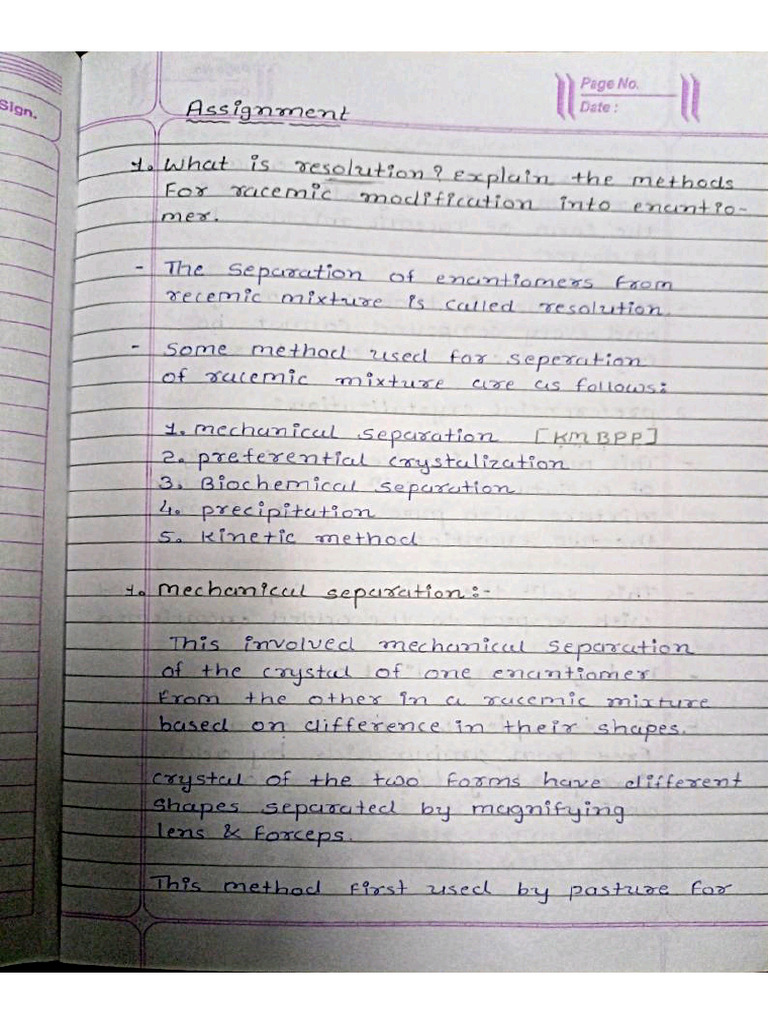 Sign.
Page No.
Date :
Assignment
1. What is resolution? explain the methods
For racemic modification into enantio-
mer.
- The separation of enantiomers from
recemic mixture is called resolution.
- Some method used for seperation
of racemic mixture are as follows:
1. mechanical separation [KMBPP]
2. preferential crystalization
3. Biochemical separation
4. precipitation
5. kinetic method
1. mechanical separation:-
This involved mechanical separation
of the crystal of one enantiomer
From the other in a racemic mixture
based on difference in their shapes.
crystal of the two forms have different
shapes separated by magnifying
lens & forceps.
This method first used by pasture for